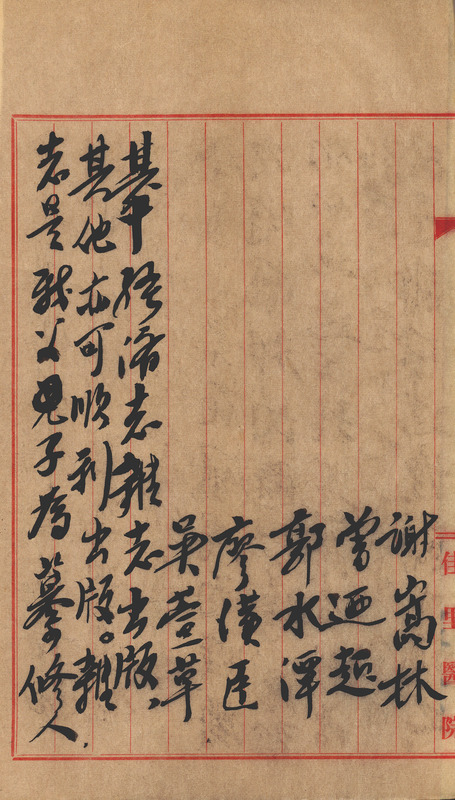 佳里醫院
謝嵩林
曾迺超
郭水潭
廖漢臣
吳萱草
其中經濟志雜志出版,
其他亦可順利出版。雜
志是我兒子為纂修人.